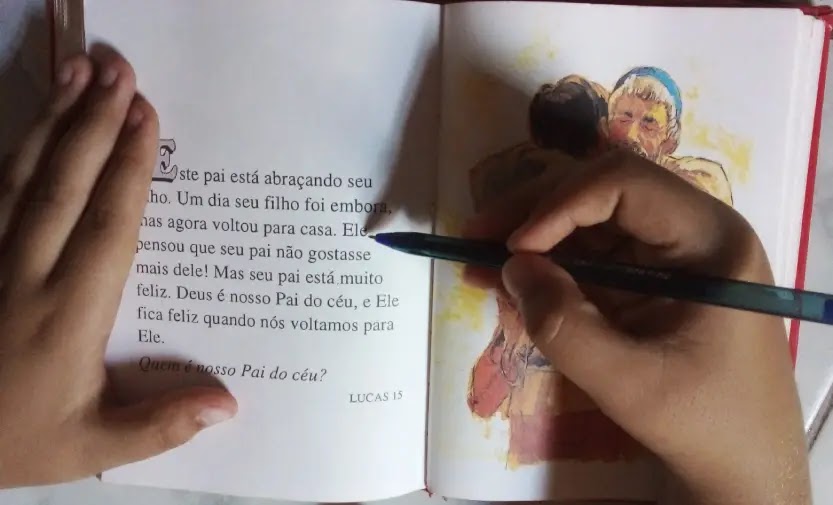 Este pai está abraçando seu
lho. Um dia seu filho foi embora,
mas agora voltou para casa. Ele
pensou que seu pai não gostasse
mais dele! Mas seu pai está muito
feliz. Deus é nosso Pai do céu, e Ele
fica feliz quando nós voltamos para
Ele.
Quem é nosso Pai do céu?
LUCAS 15